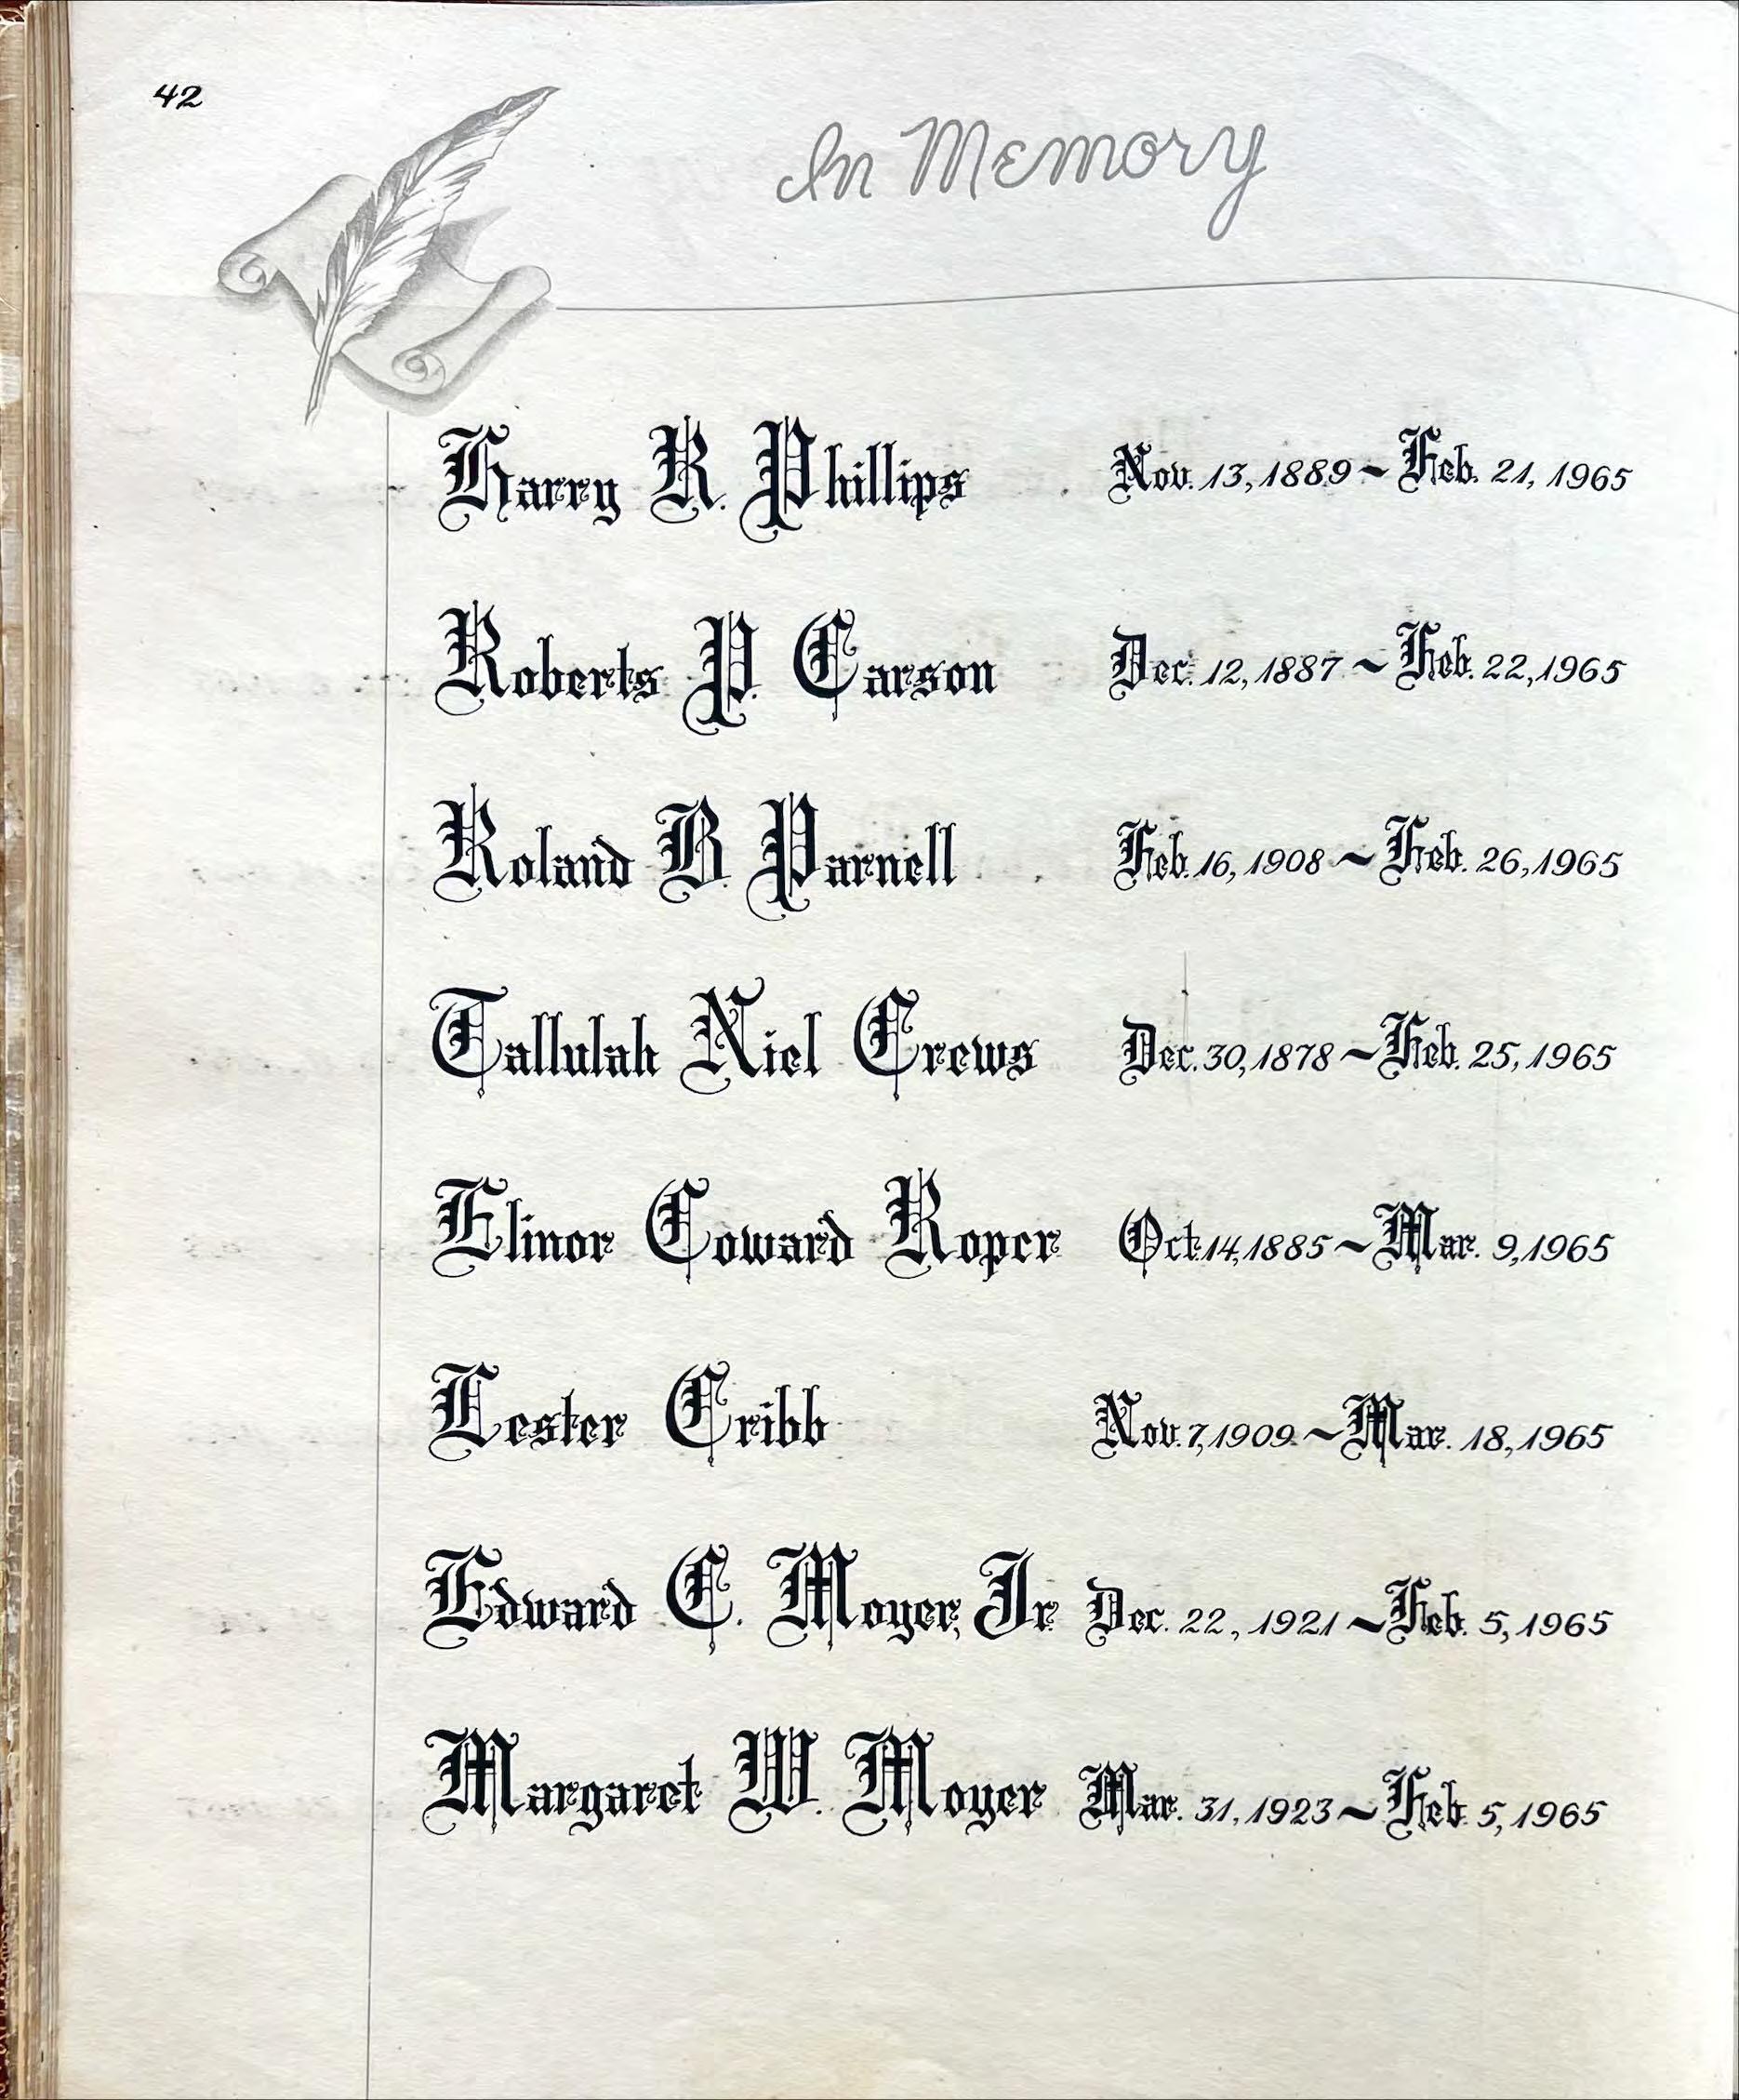 42
In Memory
Harry R. Phillips Nov. 13, 1889 ~ Feb. 21, 1965
Roberts P. Carson Dec. 12, 1887 ~ Feb. 22, 1965
Roland B. Parnell Feb. 16, 1908 ~ Feb. 26, 1965
Tallulah Niel Crews Dec. 30, 1878 ~ Feb. 25, 1965
Elinor Coward Roper Oct. 14, 1885 ~ Mar. 9, 1965
Lester Cribb Nov. 7, 1909 ~ Mar. 18, 1965
Edward C. Moyer, Jr. Dec. 22, 1921 ~ Feb. 5, 1965
Margaret W. Moyer Mar. 31, 1923 ~ Feb. 5, 1965